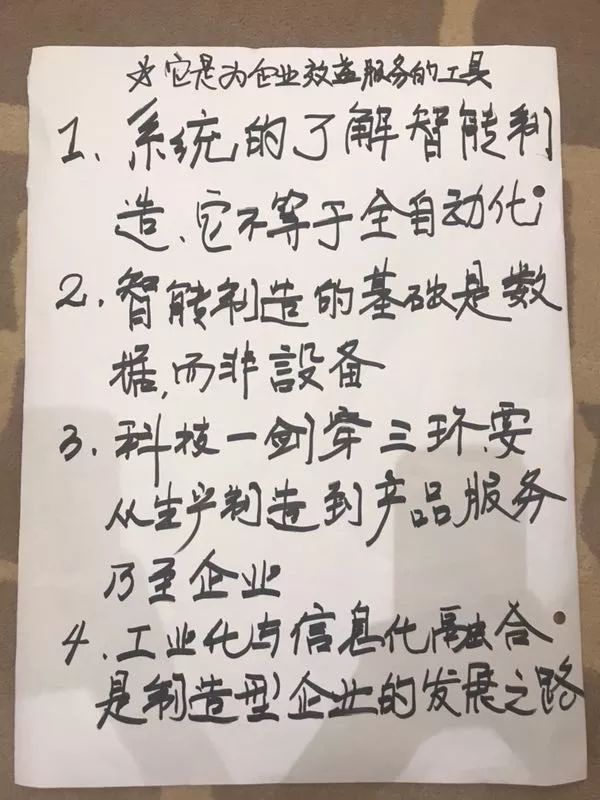 ☆它是为企业效益服务的工具
1、系统的了解智能制
造、它不等于全自动化;
2、智能制造的基础是数
据,而非設备
3、科技一剑穿三环,要
从生产制造到产品服务
乃至企业
4、工业化与信息化融合
是制造型企业的发展之路